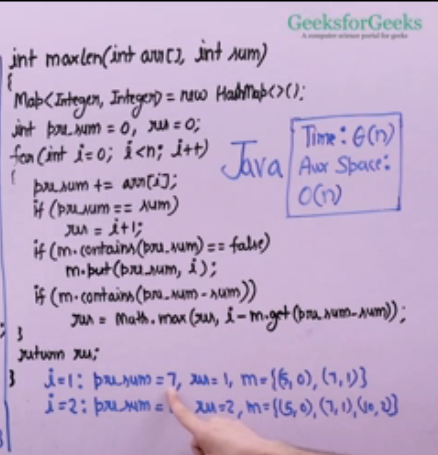 GeeksforGeeks
A computer science portal for geeks
int maxlen(int arr[], int sum)
{
Map<Integer, Integer> = new HashMap<>();
int pre_sum = 0, res = 0;
for(int i=0; i<n; i++)
{
pre_sum += arr[i];
if (pre_sum == sum)
res = i+1;
if (m.contains(pre_sum) == false)
m.put(pre_sum, i);
if (m.contains(pre_sum-sum))
res = Math.max(res, i-m.get(pre_sum-sum));
}
return res;
}
Java
Time: Θ(n)
Aux Space:
O(n)
i=1: pre_sum = 7, res = 1, m = {(5, 0), (7, 1)}
i=2: pre_sum = res = 2, m = {(5, 0), (7, 1), (10, 2)}